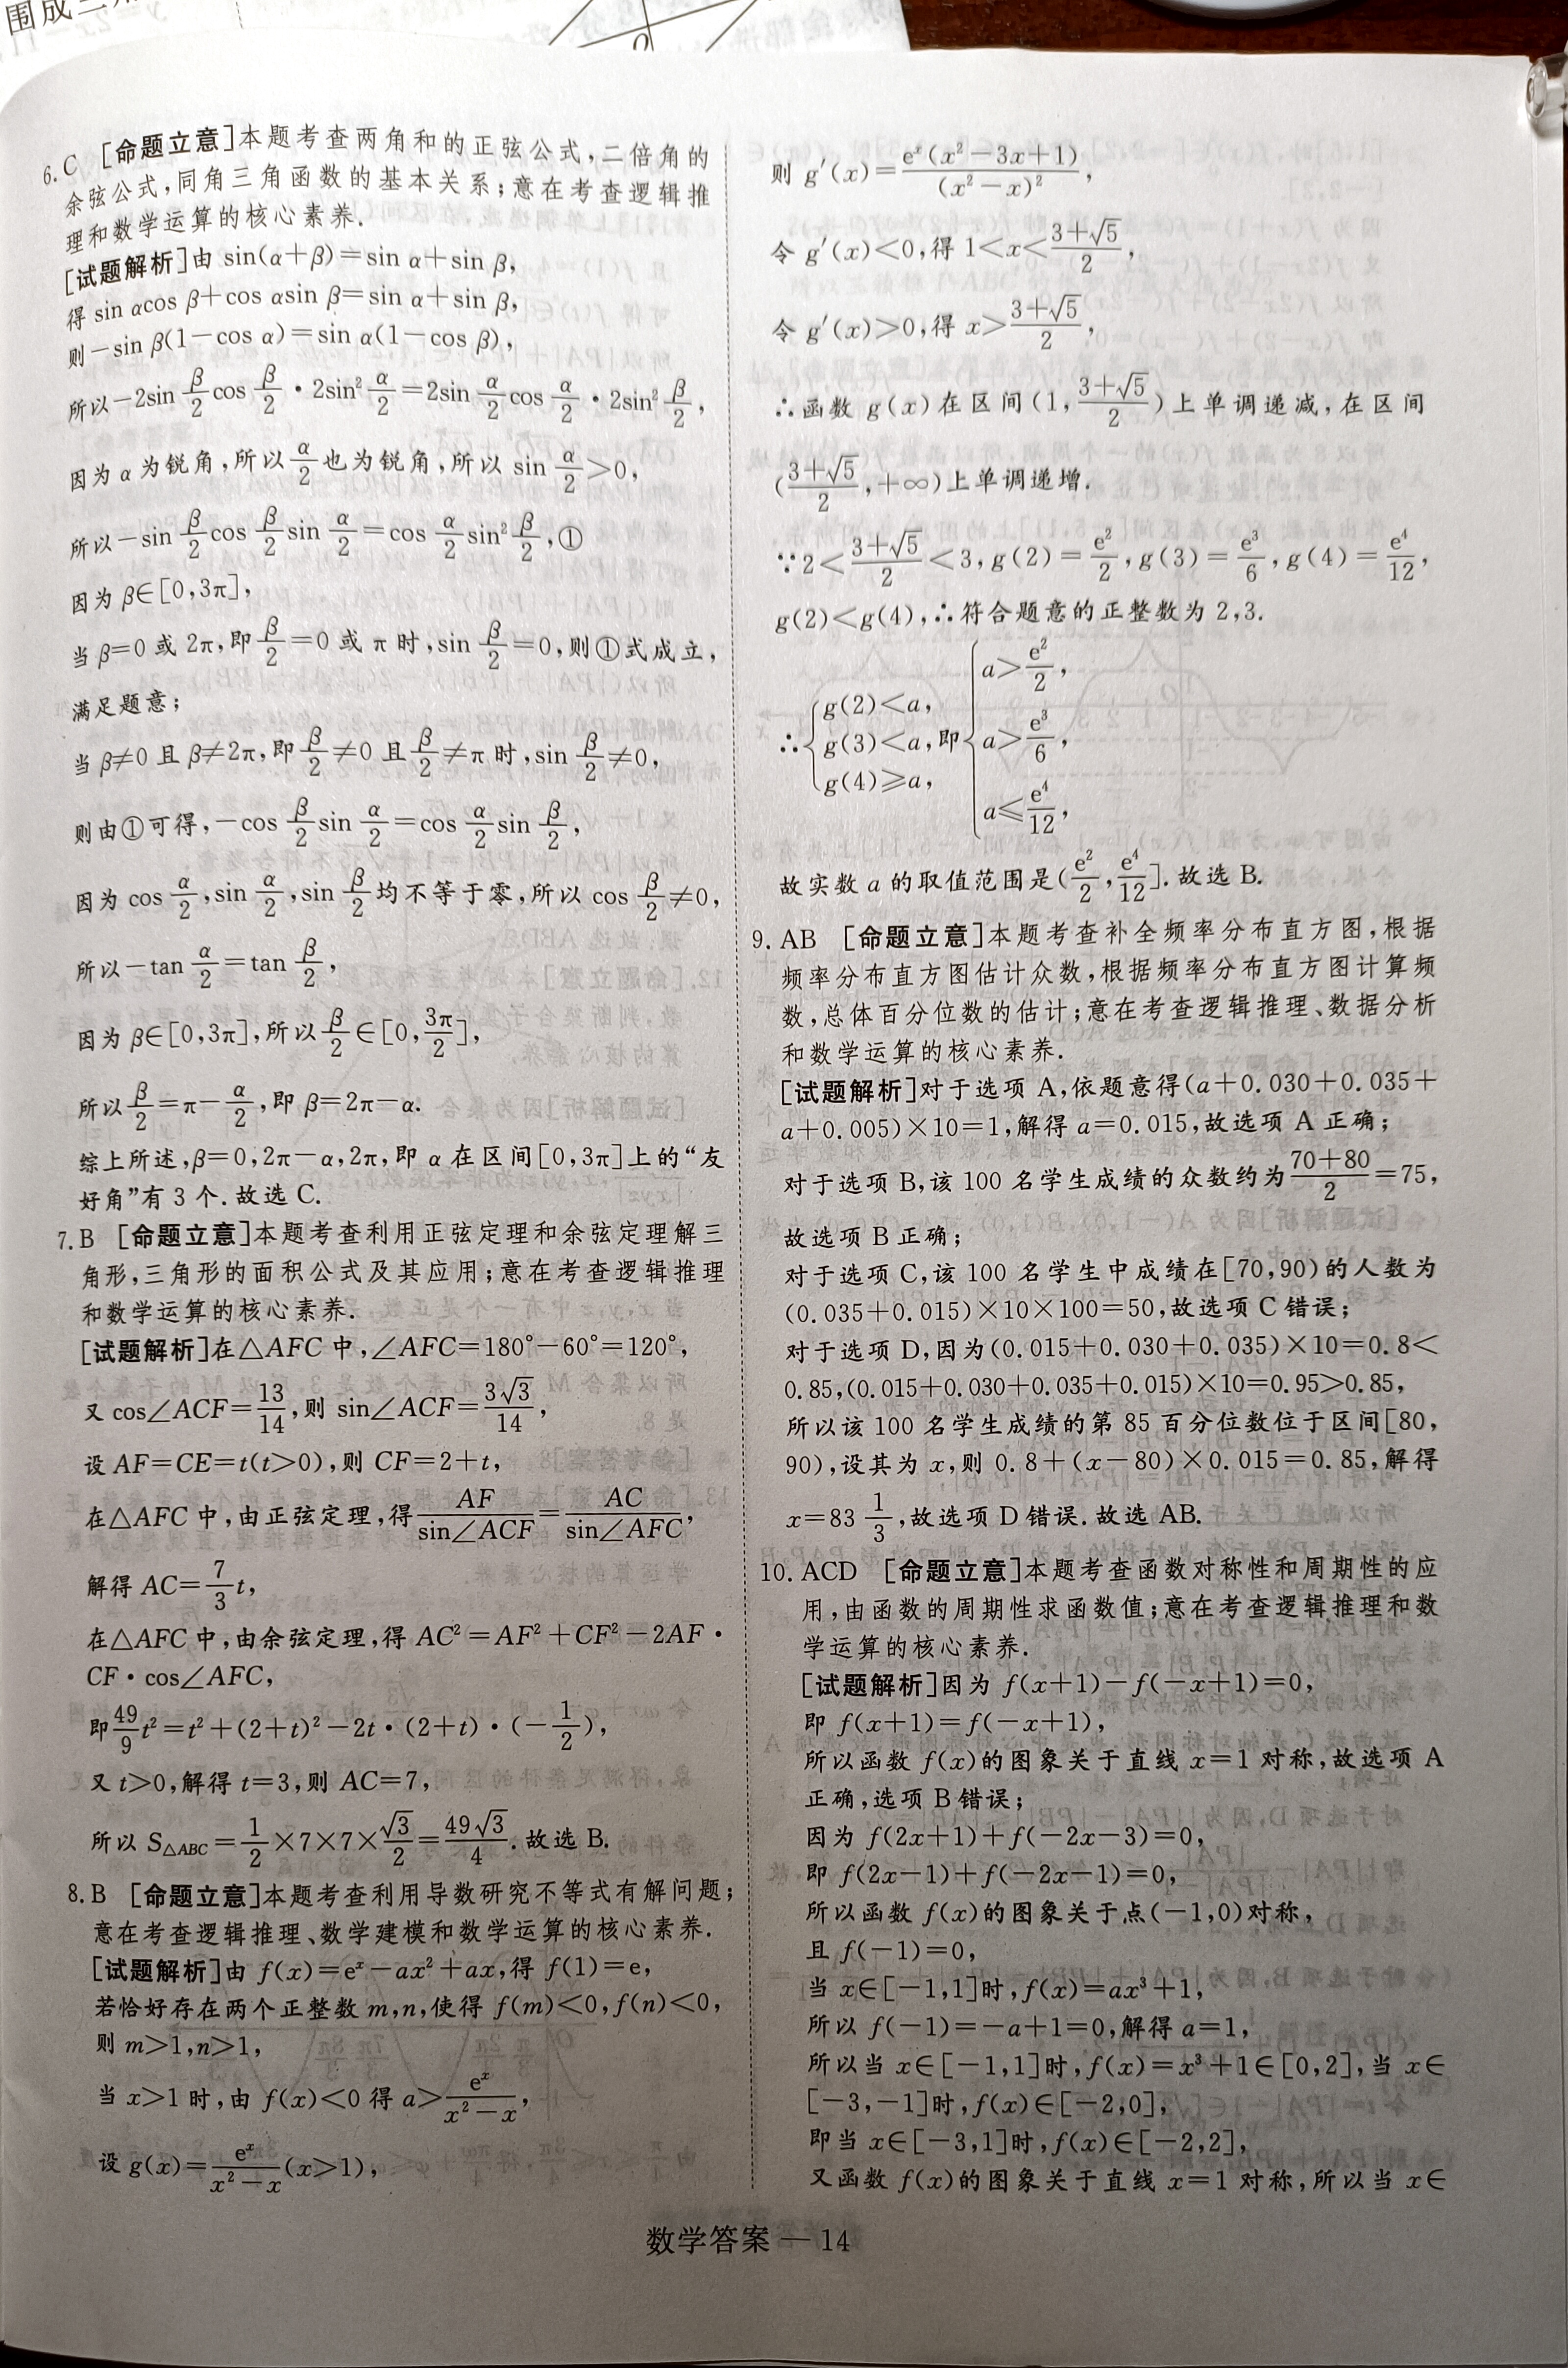 围成三
6.C [命题立意]本题考查两角和的正弦公式,二倍角的
余弦公式,同角三角函数的基本关系;意在考查逻辑推
理和数学运算的核心素养.
[试题解析]由 sin(α+β)=sin α+sin β,
得 sin αcos β+cos αsin β=sin α+sin β,
则-sin β(1-cos α)=sin α(1-cos β),
所以-2sin β/2 cos β/2 · 2sin² α/2=2sin α/2 cos α/2 · 2sin² β/2,
因为 α 为锐角,所以 α/2 也为锐角,所以 sin α/2>0,
所以-sin β/2 cos β/2 sin α/2=cos α/2 sin² β/2,①
因为 β∈[0,3π],
当 β=0 或 2π,即 β/2=0 或 π 时,sin β/2=0,则①式成立,
满足题意;
当 β≠0 且 β≠2π,即 β/2≠0 且 β/2≠π 时,sin β/2≠0,
则由①可得,-cos β/2 sin α/2=cos α/2 sin β/2,
因为 cos α/2,sin α/2,sin β/2 均不等于零,所以 cos β/2≠0,
所以-tan α/2=tan β/2,
因为 β∈[0,3π],所以 β/2∈[0,3π/2],
所以 β/2=π-α/2,即 β=2π-α.
综上所述,β=0,2π-α,2π,即 α 在区间[0,3π]上的“友
好角”有 3 个.故选 C.
7.B [命题立意]本题考查利用正弦定理和余弦定理解三
角形,三角形的面积公式及其应用;意在考查逻辑推理
和数学运算的核心素养.
[试题解析]在△AFC 中,∠AFC=180°-60°=120°,
又 cos∠ACF=13/14,则 sin∠ACF=3√3/14,
设 AF=CE=t(t>0),则 CF=2+t,
在△AFC 中,由正弦定理,得 AF/sin∠ACF=AC/sin∠AFC,
解得 AC=7/3 t,
在△AFC 中,由余弦定理,得 AC²=AF²+CF²-2AF·
CF·cos∠AFC,
即 49/9 t²=t²+(2+t)²-2t·(2+t)·(-1/2),
又 t>0,解得 t=3,则 AC=7,
所以 S△ABC=1/2×7×7×√3/2=49√3/4.故选 B.
8.B [命题立意]本题考查利用导数研究不等式有解问题;
意在考查逻辑推理、数学建模和数学运算的核心素养.
[试题解析]由 f(x)=eˣ-ax²+ax,得 f(1)=e,
若恰好存在两个正整数 m,n,使得 f(m)<0,f(n)<0,
则 m>1,n>1,
当 x>1 时,由 f(x)<0 得 a>eˣ/(x²-x),
设 g(x)=eˣ/(x²-x)(x>1),
则 g′(x)=eˣ(x²-3x+1)/(x²-x)²,
令 g′(x)<0,得 1<x<(3+√5)/2,
令 g′(x)>0,得 x>(3+√5)/2,
∴函数 g(x)在区间(1,(3+√5)/2)上单调递减,在区间
((3+√5)/2,+∞)上单调递增.
∵2<(3+√5)/2<3,g(2)=e²/2,g(3)=e³/6,g(4)=e⁴/12,
g(2)<g(4),∴符合题意的正整数为 2,3.
∴{g(2)<a, g(3)<a, g(4)≥a, 即{a>e²/2, a>e³/6, a≤e⁴/12,
故实数 a 的取值范围是(e²/2,e⁴/12].故选 B.
9.AB [命题立意]本题考查补全频率分布直方图,根据
频率分布直方图估计众数,根据频率分布直方图计算频
数,总体百分位数的估计;意在考查逻辑推理、数据分析
和数学运算的核心素养.
[试题解析]对于选项 A,依题意得(a+0.030+0.035+
a+0.005)×10=1,解得 a=0.015,故选项 A 正确;
对于选项 B,该 100 名学生成绩的众数约为(70+80)/2=75,
故选项 B 正确;
对于选项 C,该 100 名学生中成绩在[70,90)的人数为
(0.035+0.015)×10×100=50,故选项 C 错误;
对于选项 D,因为(0.015+0.030+0.035)×10=0.8<
0.85,(0.015+0.030+0.035+0.015)×10=0.95>0.85,
所以该 100 名学生成绩的第 85 百分位数位于区间[80,
90),设其为 x,则 0.8+(x-80)×0.015=0.85,解得
x=83 1/3,故选项 D 错误.故选 AB.
10.ACD [命题立意]本题考查函数对称性和周期性的应
用,由函数的周期性求函数值;意在考查逻辑推理和数
学运算的核心素养.
[试题解析]因为 f(x+1)-f(-x+1)=0,
即 f(x+1)=f(-x+1),
所以函数 f(x)的图象关于直线 x=1 对称,故选项 A
正确,选项 B 错误;
因为 f(2x+1)+f(-2x-3)=0,
即 f(2x-1)+f(-2x-1)=0,
所以函数 f(x)的图象关于点(-1,0)对称,
且 f(-1)=0,
当 x∈[-1,1]时,f(x)=ax³+1,
所以 f(-1)=-a+1=0,解得 a=1,
所以当 x∈[-1,1]时,f(x)=x³+1∈[0,2],当 x∈
[-3,-1]时,f(x)∈[-2,0],
即当 x∈[-3,1]时,f(x)∈[-2,2],
又函数 f(x)的图象关于直线 x=1 对称,所以当 x∈
数学答案 — 14